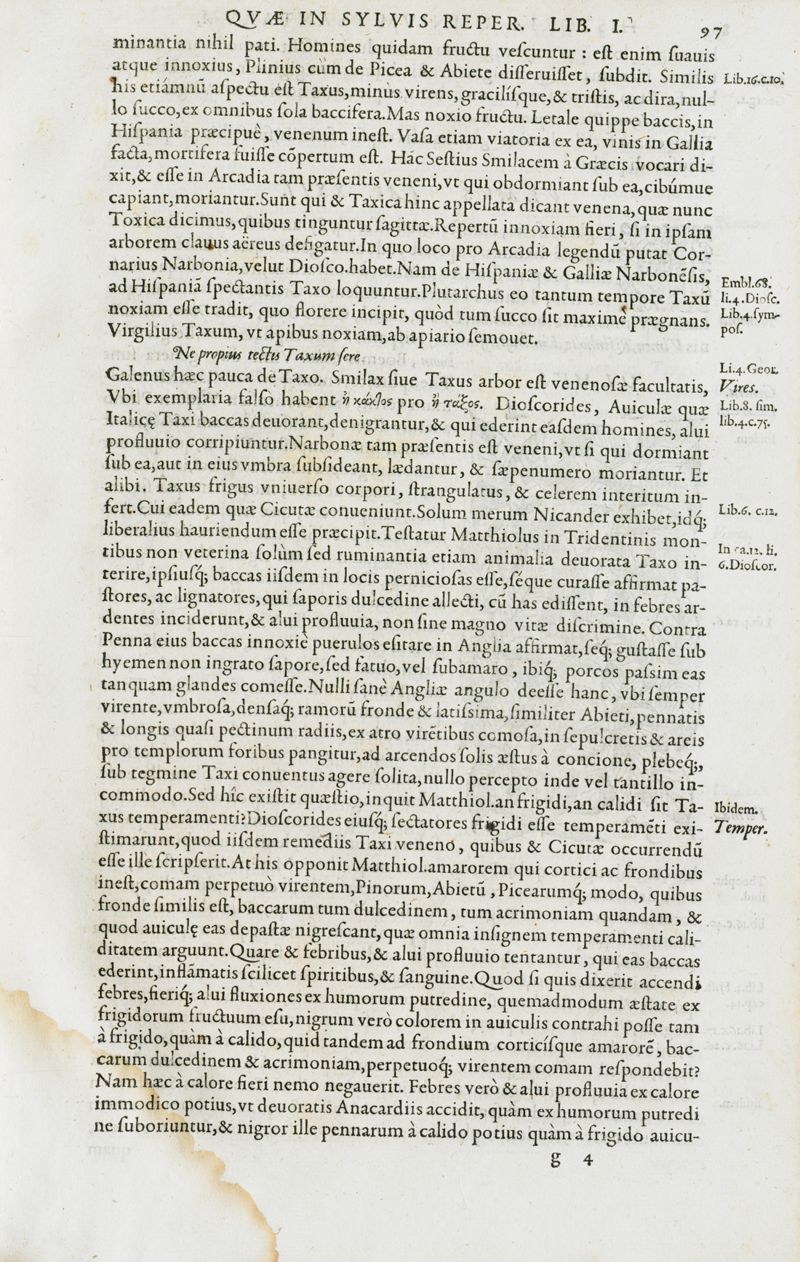 QVÆ IN SYLVIS REPER. LIB. I. 97
minantia nihil pati. Homines quidam fructu vescuntur : est enim suauis
atque innoxius, Plinius cùm de Picea & Abiete disseruisset, subdit. Similis Lib.16.c.10.
his etiámnū aspectu est Taxus,minùs virens,gracilísque,& tristis, ac dira,nul-
lo succo,ex omnibus sola baccifera.Mas noxio fructu. Letale quippe baccis,in
Hispania præcipuè, venenum inest. Vasa etiam viatoria ex ea, vinis in Gallia
facta,mortifera fuisse cōpertum est. Hác Sestius Smilacem à Græcis vocari di-
xit,& esse in Arcadia tam præsentis veneni,vt qui obdormiant sub ea,cibúmue
capiant,moriantur.Sunt qui & Taxica hinc appellata dicant venena,quæ nunc
Toxica dicimus,quibus tinguntur sagittæ.Repertū innoxiam fieri, si in ipsam
arborem clauus aëreus defigatur.In quo loco pro Arcadia legendū putat Cor-
narius Narbonia,velut Diosco.habet.Nam de Hispaniæ & Galliæ Narbonēsis, Embl.68.
ad Hispaniā spectantis Taxo loquuntur.Plutarchus eo tantum tempore Taxū li.4.Diosc.
noxiam esse tradit, quo florere incipit, quòd tum succo sit maximè prægnans. Lib.4.sym-
Virgilius Taxum, vt apibus noxiam,ab apiario semouet. pos.
Ne propius tectis Taxum sere. Li.4.Geor.
Galenus hæc pauca de Taxo. Smilax siue Taxus arbor est venenosæ facultatis, Vires.
Vbi exemplaria falso habent ἢ κάκτος pro ἢ τάξος. Dioscorides, Auiculæ quæ Lib.8. sim.
Italicę Taxi baccas deuorant,denigrantur,& qui ederint easdem homines, alui lib.4.c.75.
profluuio corripiuntur.Narbonæ tam præsentis est veneni,vt si qui dormiant
sub ea,aut in eius vmbra subsideant, lædantur, & sæpenumero moriantur. Et
alibi. Taxus frigus vniuerso corpori, strangulatus, & celerem interitum in-
fert.Cui eadem quæ Cicutæ conueniunt.Solum merum Nicander exhibet,idq́; Lib.6. c.12.
liberalius hauriendum esse præcipit.Testatur Matthiolus in Tridentinis mon- In ca.12. li.
tibus non veterina solùm sed ruminantia etiam animalia deuorata Taxo in- 6.Dioscor.
terire,ipsiusq́; baccas iisdem in locis perniciosas esse,séque curasse affirmat pa-
stores, ac lignatores,qui saporis dulcedine allecti, cū has edissent, in febres ar-
dentes inciderunt,& alui profluuia, non sine magno vitæ discrimine. Contra
Penna eius baccas innoxiè puerulos esitare in Anglia affirmat,seq́; gustasse sub
hyemen non ingrato sapore,sed fatuo,vel subamaro , ibiq́; porcos passim eas
tanquam glandes comesse.Nulli sanè Angliæ angulo deesse hanc, vbi semper
virente,vmbrosa,densaq́; ramorū fronde & latissima,similiter Abieti,pennatis
& longis quasi pectinum radiis,ex atro virētibus comosa,in sepulcretis & areis
pro templorum foribus pangitur,ad arcendos solis æstus à concione, plebeq́;,
sub tegmine Taxi conuentus agere solita,nullo percepto inde vel tantillo in-
commodo.Sed hîc existit quæstio,inquit Matthiol.an frigidi,an calidi sit Ta- Ibidem.
xus temperamenti?Dioscorides eiusq́; sectatores frigidi esse temperamēti exi- Temper.
stimarunt,quod iisdem remediis Taxi veneno , quibus & Cicutæ occurrendū
esse ille scripserit.At his opponit Matthiol.amarorem qui cortici ac frondibus
inest,comam perpetuò virentem,Pinorum,Abietū ,Picearumq́; modo, quibus
fronde similis est, baccarum tum dulcedinem , tum acrimoniam quandam , &
quod auiculę eas depastæ nigrescant,quæ omnia insignem temperamenti cali-
ditatem arguunt.Quare & febribus,& alui profluuio tentantur , qui eas baccas
ederint,inflāmatis scilicet spiritibus,& sanguine.Quod si quis dixerit accendi
febres,fieriq́; alui fluxiones ex humorum putredine, quemadmodum æstate ex
frigidorum fructuum esu,nigrum verò colorem in auiculis contrahi posse tam
à frigido,quàm à calido,quid tandem ad frondium corticísque amarorē , bac-
carum dulcedinem & acrimoniam,perpetuoq́; virentem comam respondebit?
Nam hæc à calore fieri nemo negauerit. Febres verò & alui profluuia ex calore
immodico potius,vt deuoratis Anacardiis accidit, quàm ex humorum putredi
ne suboriuntur,& nigror ille pennarum à calido potius quàm à frigido auicu-
g 4